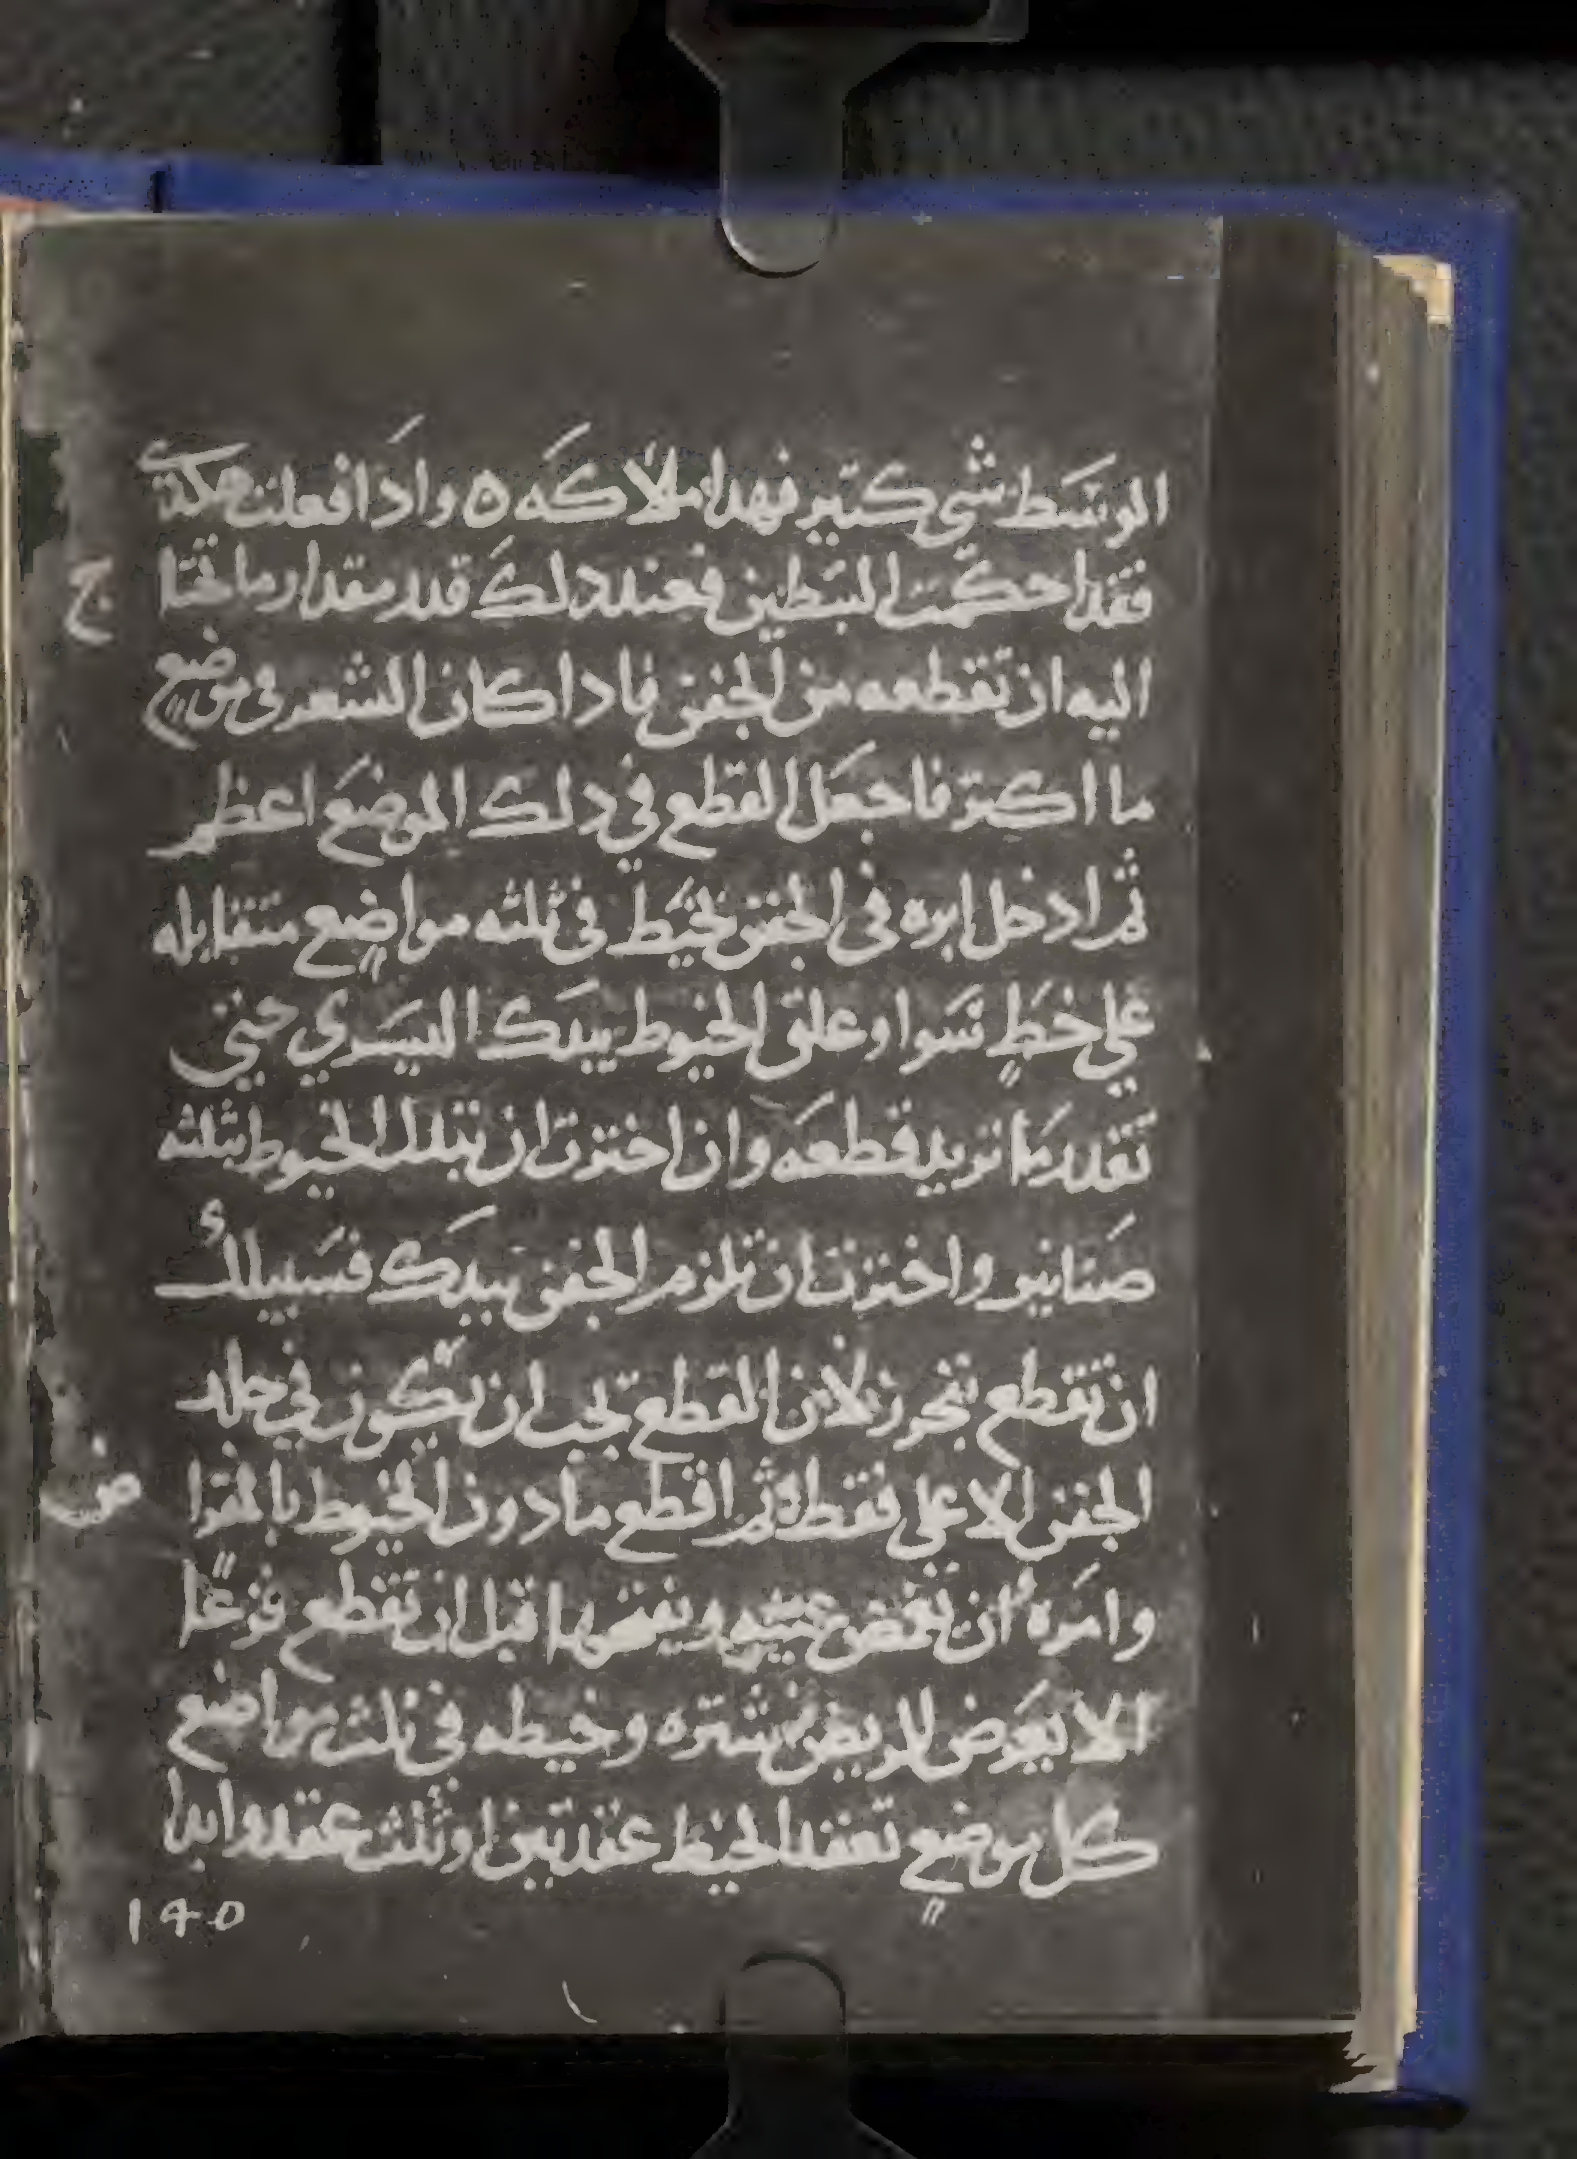 الوسط شي كثير فهدا ملاكه ٥ وادا فعلت هكدى
فقد احكمت البطين فعند دلك قدر مقدار ما تحتا
ج
اليه ان تقطعه من الجفن فادا كان الشعر في موضع
ما اكثر فاجعل القطع في دلك الموضع اعظم
ثم ادخل ابره في الجفن بخيط في ثلثه مواضع متقابله
على خط سوا وعلق الخيوط بيدك اليسرى حتى
تقدر ما تريد قطعه وان اخترت ان تبدل الخيوط بثلثه
صنانير واخترت ان تلزم الجفن بيدك فسبيلك
ان تقطع بتحرز لان القطع يجب ان يكون في جلد
الجفن الاعلى فقط ٥ ثم اقطع ما دون الخيوط بالمقرا
ض
وامره ان يغمض عينيه ويفتحها قبل ان تقطع فزعًا
الا يعرض للمريض شتره وخيطه في ثلث مواضع
كل موضع تعقد الخيط عقدتين او ثلث عقد وابدا
١٩٥